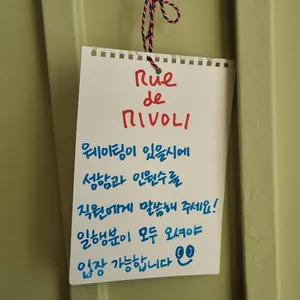 Rue
de
RIVOLI
웨이팅이 있을시에
성함과 인원수를
직원에게 말씀해 주세요!
일행분이 모두 오셔야
입장 가능합니다